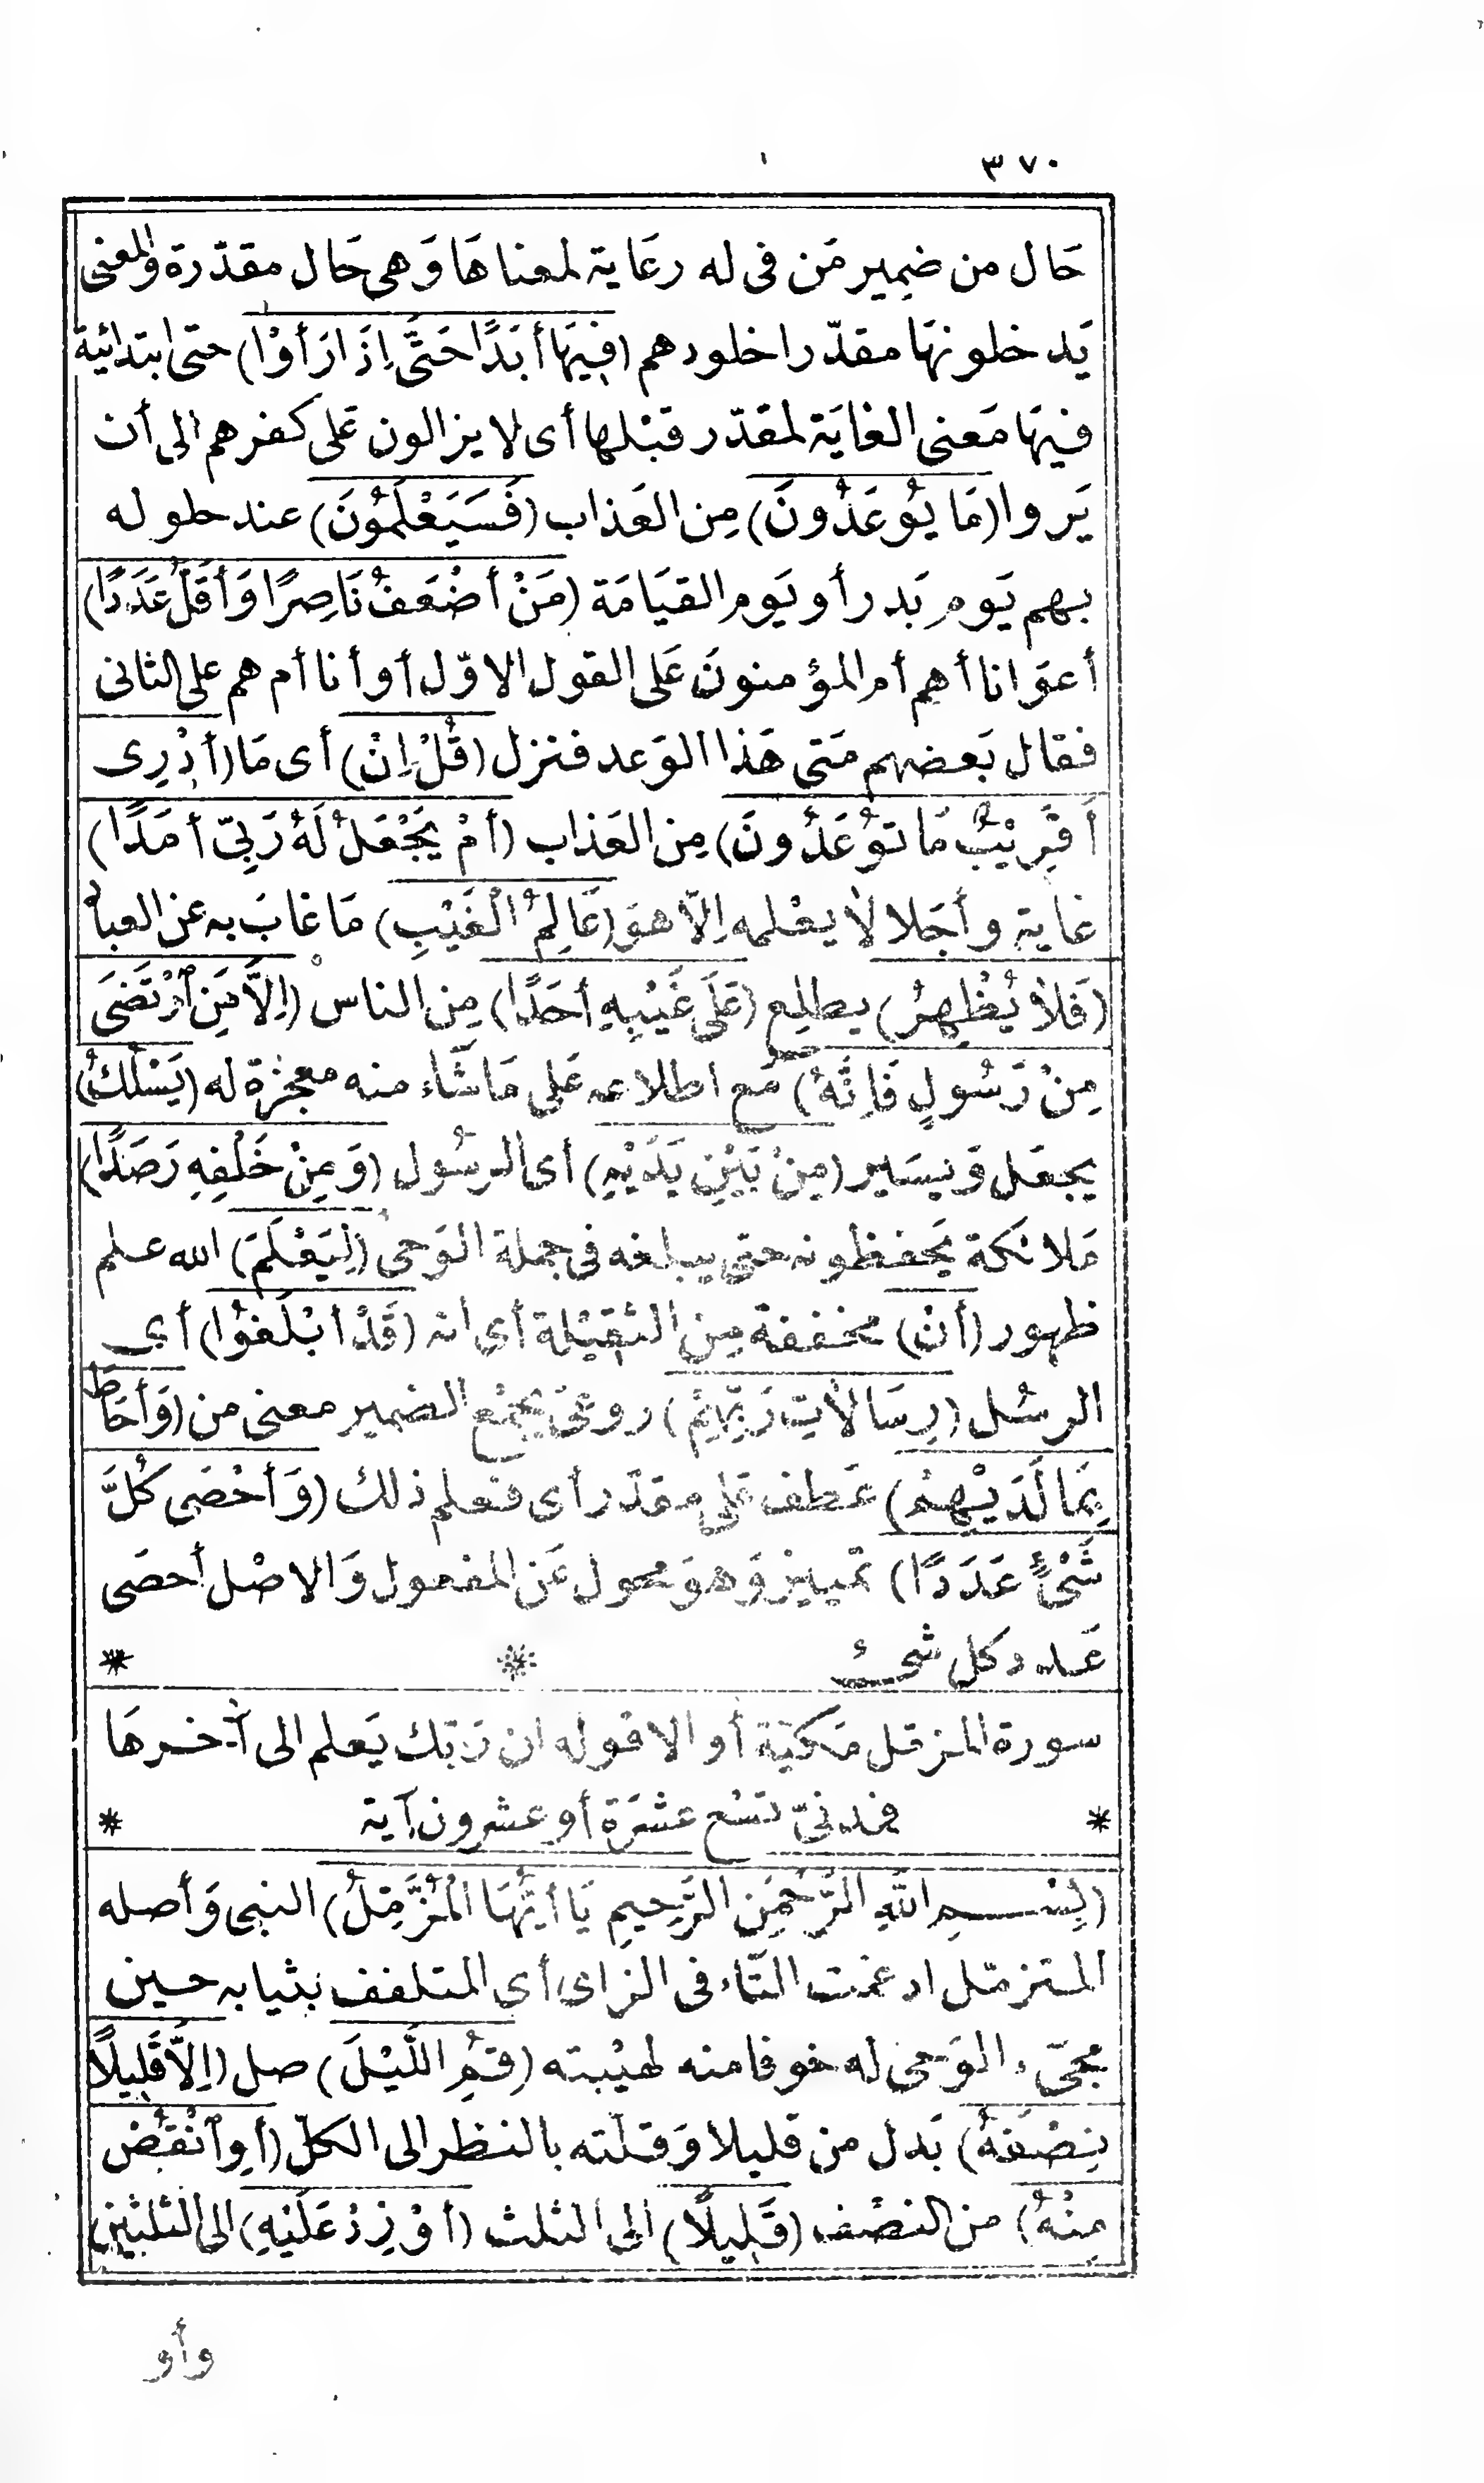 ٣٧٠
حَال من ضمير مَن فى له رعَاية لمعناهَا وَهى حَال مقدّرة والمعنى
يَدخلونهَا مقدّرا خلودهم (فِيهَا أَبَدًا حَتَّى إِذَا رَأَوْا) حتى ابتدائية
فيهَا مَعنى الغايَة لمقدّر قبْلها أى لا يزالون عَلى كفرهم الى أن
يَروا (مَا يُوعَدُونَ) مِن العَذاب (فَسَيَعْلَمُونَ) عند حلوله
بهم يَوم بَدر أو يَوم القيَامَة (مَنْ أَضْعَفُ نَاصِرًا وَأَقَلُّ عَدَدًا)
أعوَانا أهم أم المؤمنونَ عَلى القول الاوّل أو أنا أم هم على الثانى
فقال بَعضهم مَتى هَذا الوَعد فنزل (قُلْ إِنْ) أى مَا (أَدْرِى
أَقَرِيْبٌ مَا تُوعَدُونَ) مِن العَذاب (أَمْ يَجْعَلُ لَهُ رَبِّى أَمَدًا)
غاية وأجَلا لا يعْلمه اِلّا هوَ (عَالِمُ الْغَيْبِ) مَا غابَ به عن العباد
(فَلَا يُظْهِرُ) يطلِع (عَلَى غَيْبِهِ أَحَدًا) مِن الناس (اِلَّا مَنِ ارْتَضَى
مِنْ رَسُولٍ فَاِنَّهُ) مَع اطلاعه عَلى مَا شَاء منه معجزة له (يَسْلُكُ)
يجعَل وَيسَير (مِنْ بَيْنِ يَدَيْهِ) أى الرسُول (وَمِنْ خَلْفِهِ رَصَدًا)
مَلائكة يَحفظونه حتى يبلغه فى جملة الوَحى (لِيَعْلَمَ) الله علم
ظهور (أَنْ) مخففة مِن الثقيْلة أى انه (قَدْ أَبْلَغُوا) أى
الرسُل (رِسَالَاتِ رَبِّهِمْ) روعَى بجمْع الضمير معنى من (وَأَحَاطَ
بِمَا لَدَيْهِمْ) عَطف عَلى مقدّر أى فعلم ذلك (وَأَحْصَى كُلَّ
شَىْءٍ عَدَدًا) تمييز وَهوَ محول عَن المفعول وَالاصْل أحصَى
عَدد كل شىء
سورة المزمّل مَكيّة أو الا قوله ان رَبّك يَعلم الى آخرهَا
فمدنىّ تسْع عشرَة أو عشرون آية
(بِسْمِ اللهِ الرَّحْمَنِ الرَّحِيمِ يَا أَيُّهَا الْمُزَّمِّلُ) النبى وَأصله
المتزمّل ادغمت التّاء فى الزاى أى المتلفف بثيابه حين
مجىء الوَحى له خوفا منه لهيْبته (قُمِ اللَّيْلَ) صل (اِلَّا قَلِيلًا
نِصْفَهُ) بَدل من قليلا وَقلّته بالنظر الى الكلّ (أَوِ انْقُصْ
مِنْهُ) من النصْف (قَلِيلًا) الى الثلث (أَوْ زِدْ عَلَيْهِ) الى الثلثين
وأو